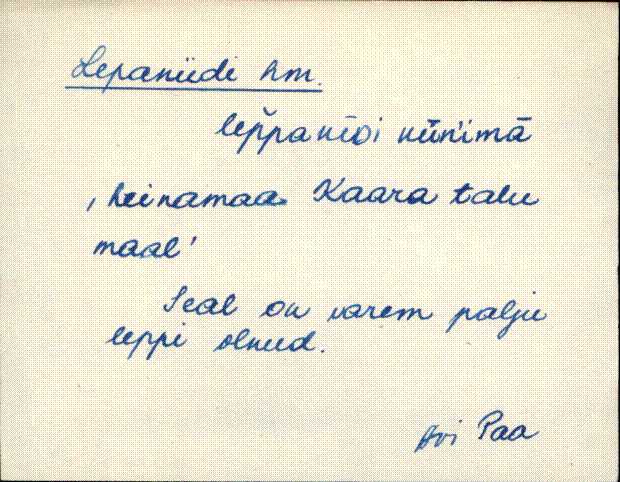 Lepaniidi hm.
leppaniDi
‚heinamaa Kaara talu
maal'
Seal on varem palju
leppi olnud.
Paa